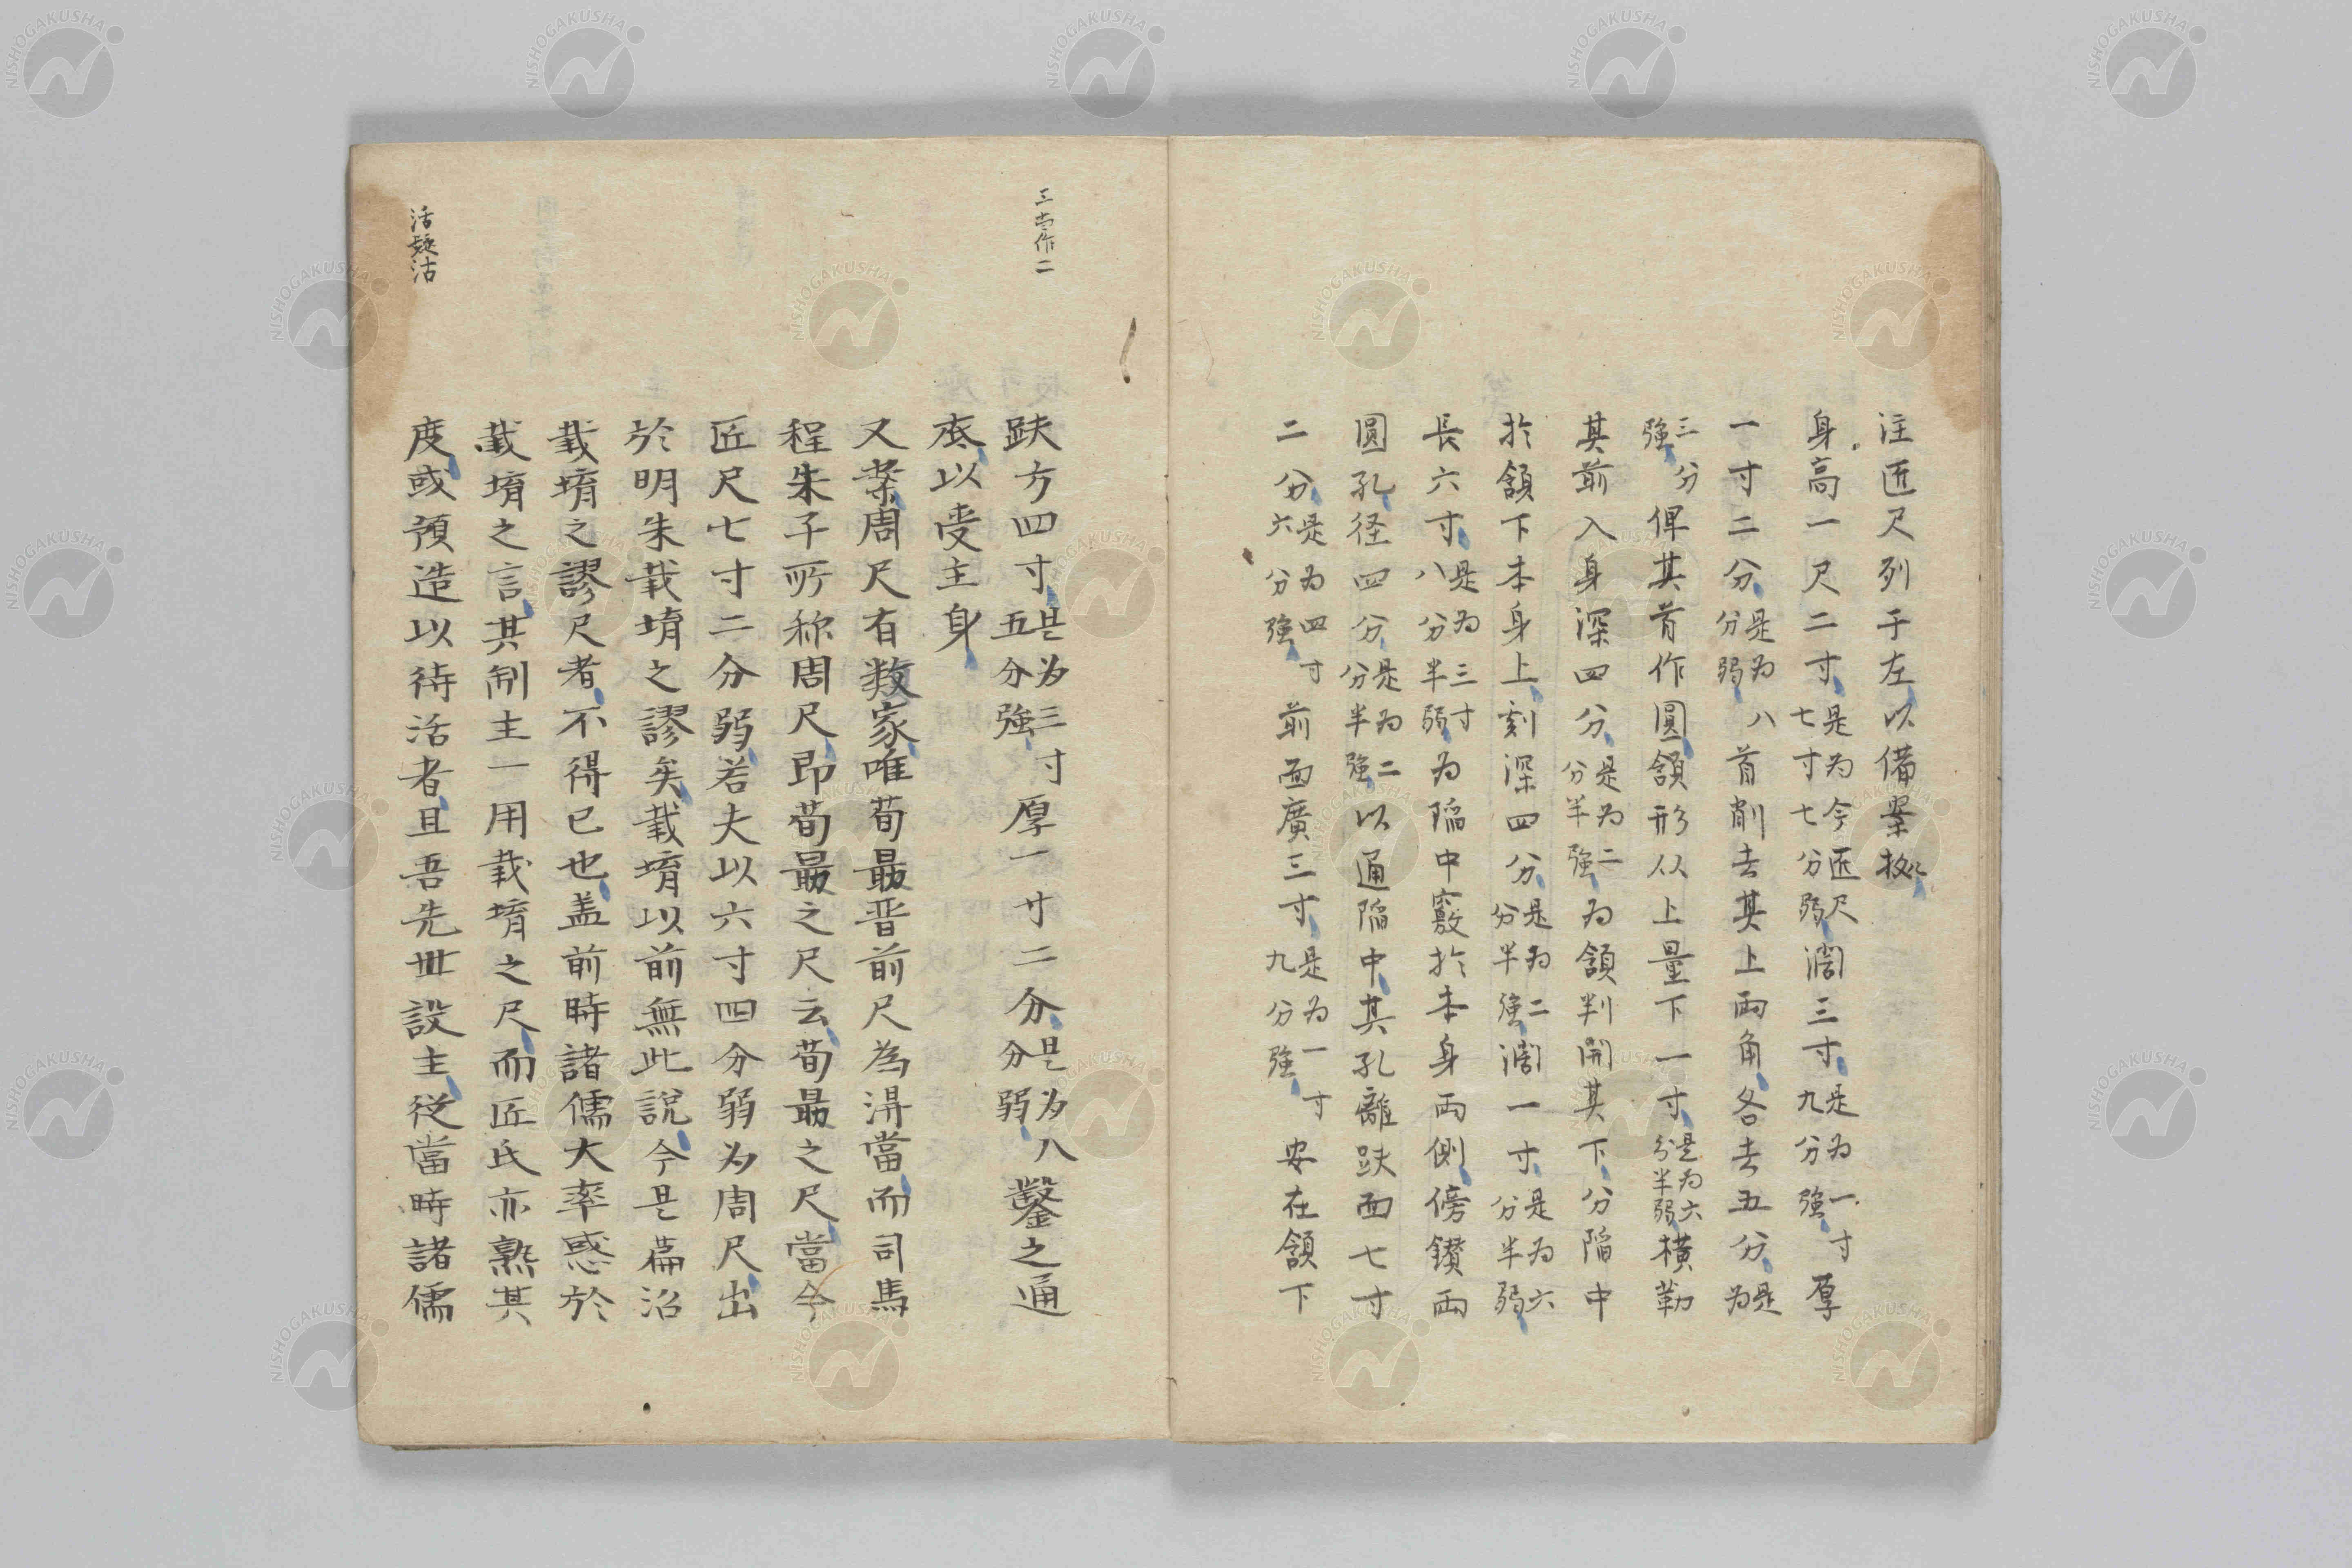 注匠尺列于左以備案拠
身高一尺二寸是為今匠尺七寸七分弱濶三寸是為一寸九分強厚
一寸二分是為八分弱首削去其上両角各去五分是為
三分強俾其首作圓頷形従上量下一寸是為六分半弱横勒
其前入身深四分是為二分半強為頷判開其下分陥中
於頷下本身上刻深四分是為二分半強濶一寸是為六分半弱
長六寸是為三寸八分半弱為陥中竅於本身両側傍鑚両
圓孔径四分是為二分半強以通陥中其孔離趺面七寸
二分是為四寸六分強前面廣三寸是為一寸九分強安在頷下
三當作二
趺方四寸是为三寸五分強厚一寸二分是为八分弱鑿之通
底以受主身
又案周尺有数家唯荀最晋前尺為淂當而司馬
程朱子所称周尺即荀最之尺云荀最之尺當今
匠尺七寸二分弱若夫以六寸四分弱为周尺出
於明朱載堉之謬矣載堉以前無此説今是篇沿
載堉之謬尺者不得已也盖前時諸儒大率惑於
載堉之言其制主一用載堉之尺而匠氏亦熟其
度或預造以待活者且吾先世設主従當時諸儒
活疑沽
NISHOGAKUSHA